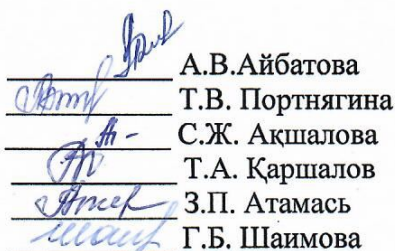 А.В.Айбатова
Т.В. Портнягина
С.Ж. Ақшалова
Т.А. Қаршалов
З.П. Атамась
Г.Б. Шаимова